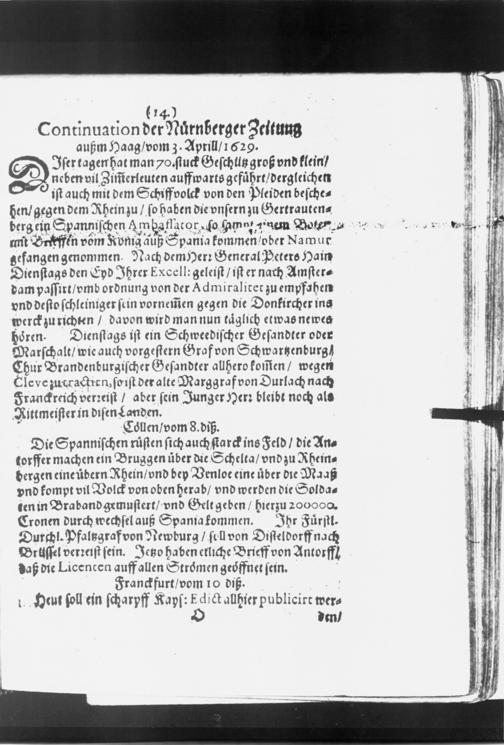 (14.)
Continuation der Nürnberger Zeitung
außm Haag/vom 3. Aprill/1629.
DIser tagen hat man 70. stuck Geschütz groß vnd klein/
neben vil Zim̃erleuten auffwarts geführt/dergleichen
ist auch mit dem Schiffvolck von den Pleiden besche-
hen/gegen dem Rhein zu / so haben die vnsern zu Gertrauten-
berg ein Spannischen Ambassator, so sampt einem Boten
mit Brieffen vom König auß Spania kommen/ober Namur
gefangen genommen. Nach dem Herr General Peters Hain
Dienstags den Eyd Ihrer Excell: geleist / ist er nach Amster-
dam passirt/vmb ordnung von der Admiralitet zu empfahen
vnd desto schleiniger sein vornem̃en gegen die Donkircher ins
werck zu richten / davon wird man nun täglich etwas newes
hören. Dienstags ist ein Schweedischer Gesandter oder
Marschalt/wie auch vorgestern Graf von Schwartzenburg/
Chur Brandenburgischer Gesandter allhero kom̃en / wegen
Cleve zu tractirn, so ist der alte Marggraf von Durlach nach
Franckreich verreist / aber sein Junger Herr bleibt noch als
Rittmeister in disen Landen.
Cöllen/vom 8. diß.
Die Spannischen rüsten sich auch starck ins Feld / die An-
torffer machen ein Bruggen über die Schelta/vnd zu Rhein-
bergen eine übern Rhein/vnd bey Venloe eine über die Maaß
vnd kompt vil Volck von oben herab/vnd werden die Solda-
ten in Braband gemustert/vnd Gelt geben/hierzu 200000.
Cronen durch wechsel auß Spania kommen. Ihr Fürstl.
Durchl. Pfaltzgraf von Newburg / soll von Disteldorff nach
Brüssel verreist sein. Jetzo haben etliche Brieff von Antorff/
daß die Licenten auff allen Strömen geöffnet sein.
Franckfurt/vom 10 diß.
Heut soll ein scharpff Kays: Edict allhier publicirt wer-
O den/